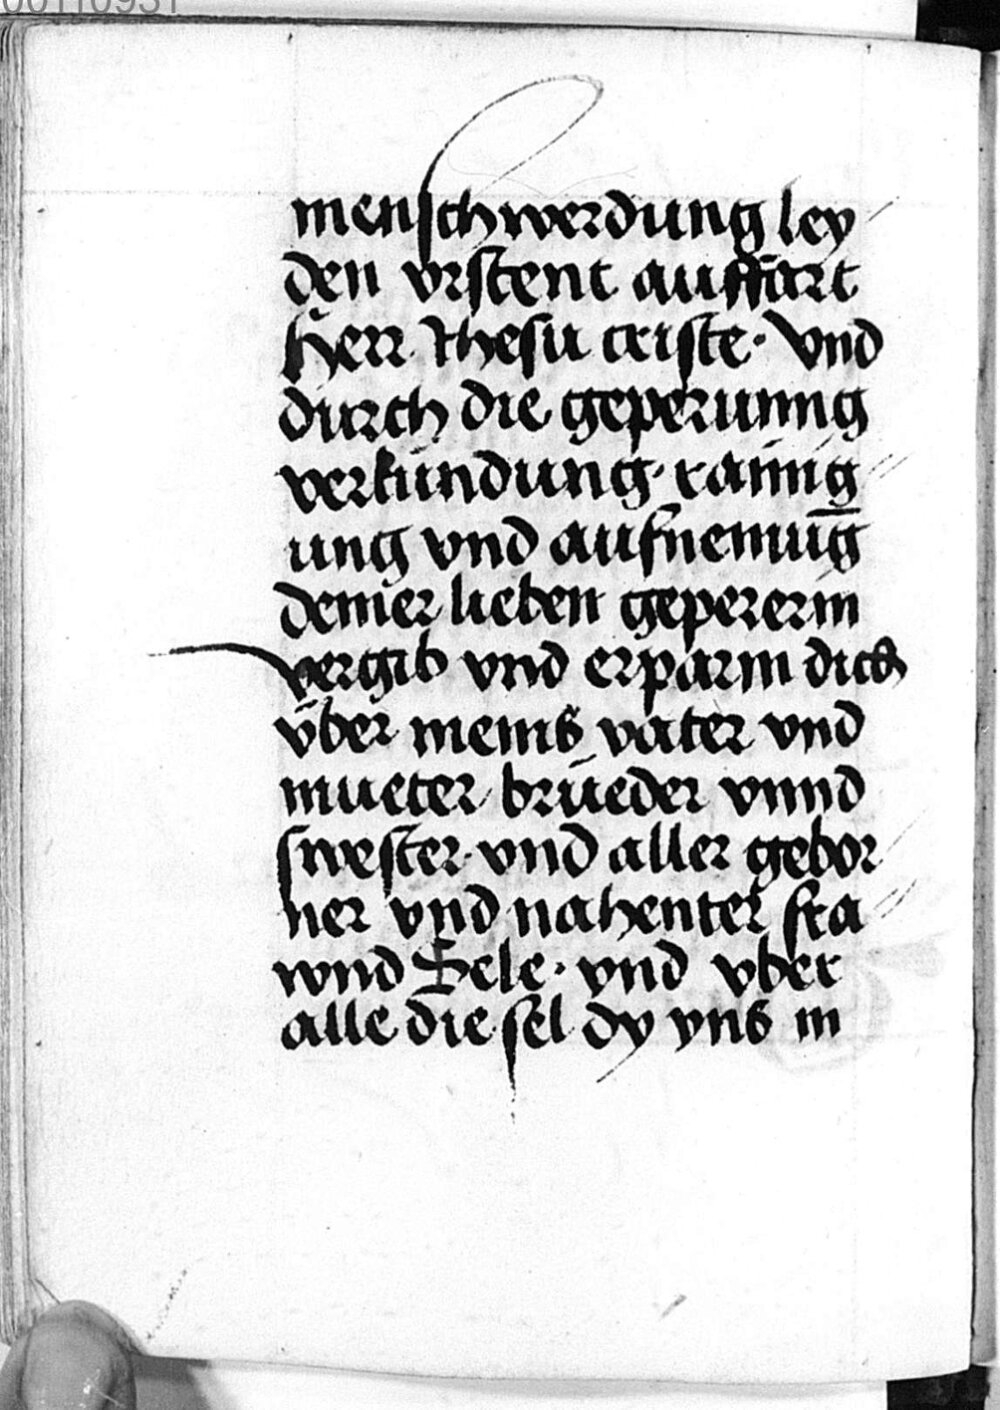 00110931
menschwerdung ley
den vrstent auffart
Herr Ihesu criste · Vnd
durch die geperunng
verkündung · rainig
ung vnd aufnemūg
deiner lieben gepererin
vergib vnd erparm dich
vber meins vater vnd
mueter brüeder vnnd
swester · vnd aller gebor
ner vnd nahenter fra
wnd Sele · vnd vber
alle die sel dy vns in